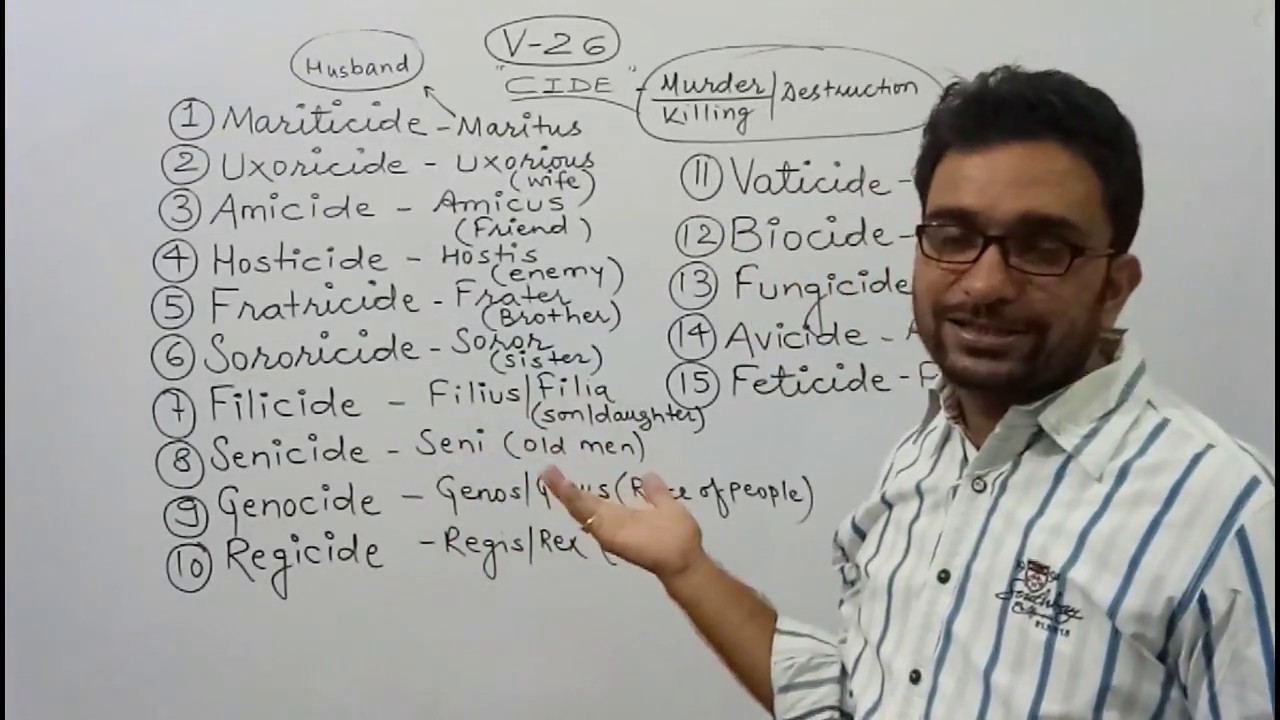 V-26
Husband
"CIDE" - Murder/Killing | Destruction
① Mariticide - Maritus
② Uxoricide - Uxorious
(wife)
③ Amicide - Amicus
(Friend)
④ Hosticide - Hostis
(enemy)
⑤ Fratricide - Frater
(Brother)
⑥ Sororicide - Soror
(sister)
⑦ Filicide - Filius/Filia
(son/daughter)
⑧ Senicide - Seni (old men)
⑨ Genocide - Genos/ ( of people)
⑩ Regicide - Regis/Rex (
⑪ Vaticide -
⑫ Biocide -
⑬ Fungicide
⑭ Avicide -
⑮ Feticide -